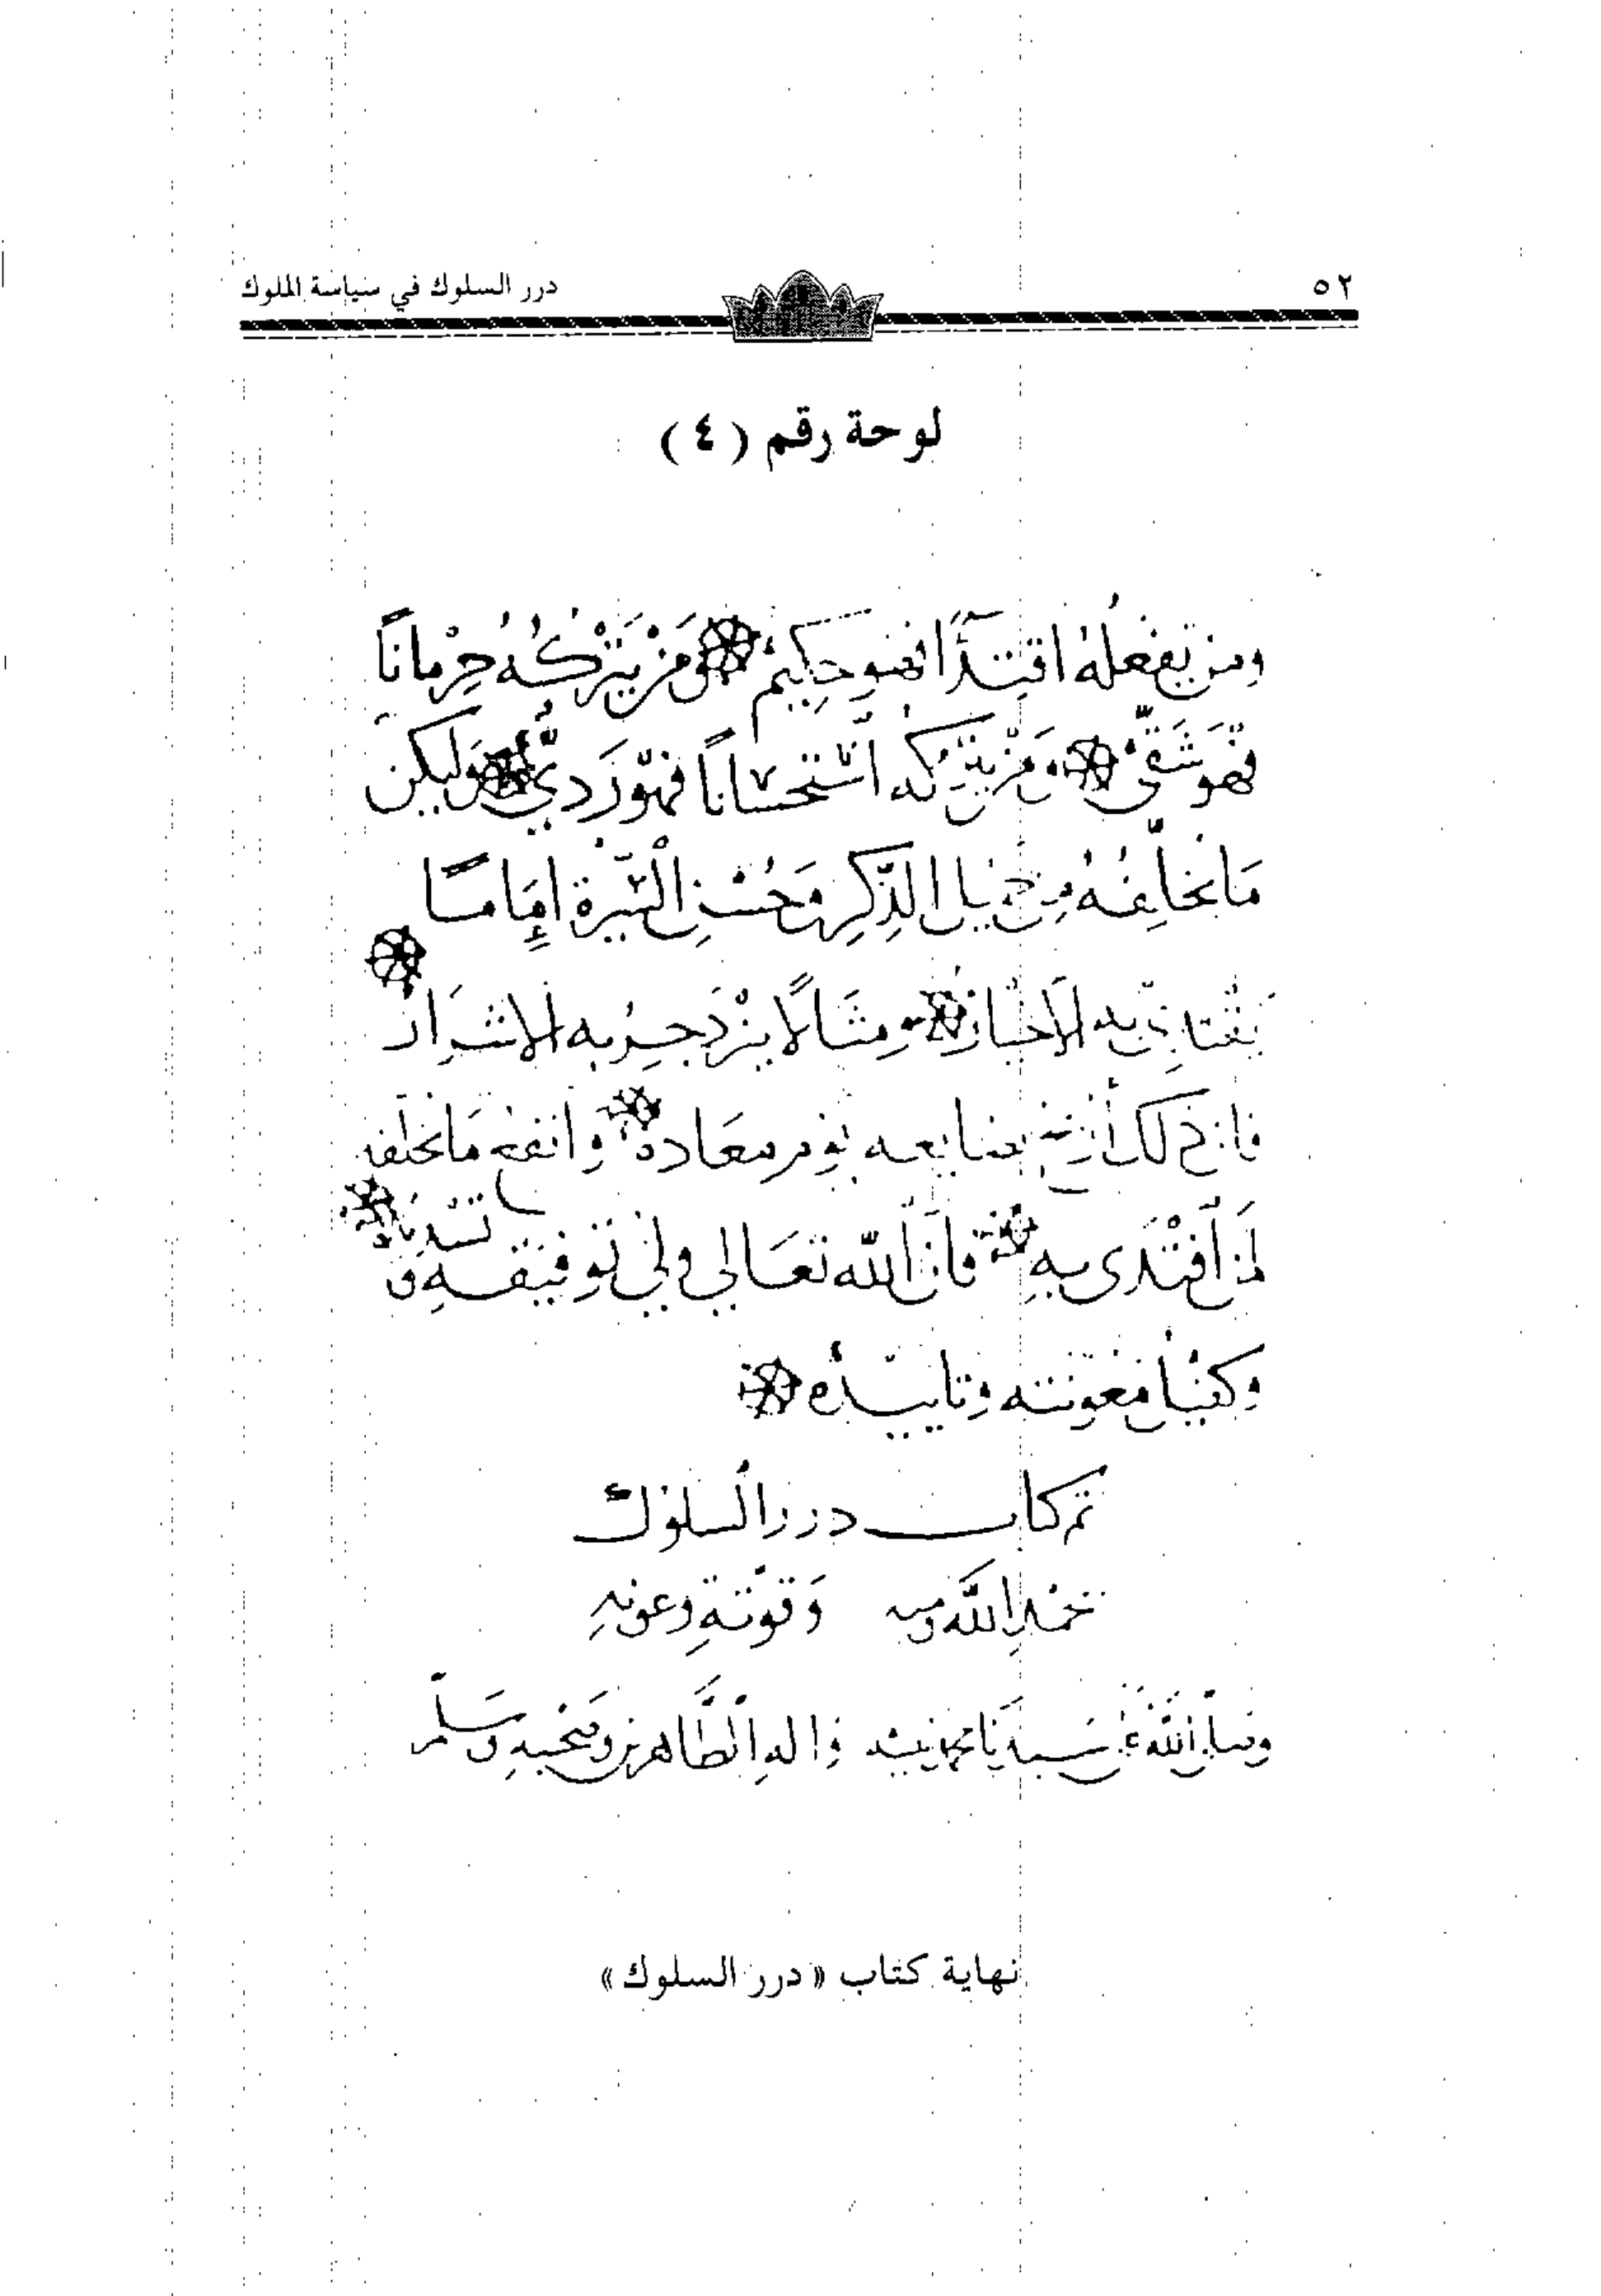 ٥٢
درر السلوك في سياسة الملوك
لوحة رقم ( ٤ )
ومن يفعلهُ اقتِدَآءً افهو حكيمٌ وَمَنْ يَتْركُهُ حِرْمانًا
فهوَ شَقيٌّ وَمَنْ يتركه اسْتحسانًا فهوَ رَديٌّ وَليكن
مَا يخلِّفُهُ مِن جميل الذِّكرِ وَحُسْنِ السِّيرة إِمَامًا
يَقْتدِي به الأخيارُ ومِثَالًا يَزْدَجِرُ به الاشرَار
فان ذلك بضايعه يوم معاده وانفع مَا يخلفه
لمن اقْتَدَى بهِ فانَّ اللّه تعَالي ولي توفيقهِ وَ تسْديده
وكفيلُ معونته وتاييده
تم كتاب درر السلوك
بحمْد اللّه ومنه وَقوّتهِ وعونهِ
وصلى الله على سَيدنا محمد نبيه واله الطَّاهرين وصَحبه وسَلم
نهاية كتاب « درر السلوك »